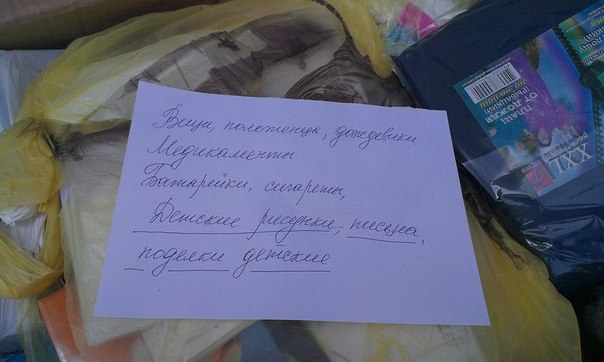 Вещи, полотенца, дождевики
Медикаменты
Батарейки, сигареты,
Детские рисунки, письма,
поделки детские
ПЛАЩ
ОТ ДОЖДЯ
XXL